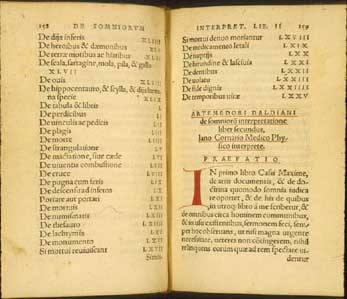 158 DE SOMNIORVM
De dijs inferis XLIII
De heroibus & dæmonibus XL
De terræ motibus ac hiatibus
De scala, sartagine, mola, pila, & gallo
XLVII
De ouis
De hippocentauro, & scylla, & dijs
na specie XLIX
De tabula & libris L
De perdicibus LI
De uinculis ac pedicis LII
De plagis LIII
De morte LIIII
De strangulatione LV
De mactatione, siue cæde LVI
De uiuentis combustione LVII
De cruce LVIII
De pugna cum feris LIX
De descensu ad inferos LX
Portare aut portari LXI
De mortuis LXII
De numismatis LXIII
De thesauro LXIIII
De lachrymis LXV
De monumento LXVI
Si mortui reuiuiscant LXVII
Si mor-
INTERPRET. LIB. II 159
Si mortui denuo moriantur LXVIII
De medicamento letali LXIX
De nuptijs LXX
De hirundine & luscinia LXXI
De dentibus LXXII
De uolatu LXXIII
De fide dignis LXXIIII
De temporibus uitæ LXXV
ARTEMIDORI DALDIANI
de somniorū interpretatione
liber secundus,
Iano Cornario Medico Phy-
sico interprete.
PRAEFATIO
IN primo libro Cassi Maxime,
de artis documentis, & de do-
ctrina quomodo somnia iudica
re oportet, & de his de quibus
in utroq; libro à me scribetur,
de omnibus circa hominem communibus,
& in usu existentibus, sermonem feci, sem-
per hoc obseruans, ut nisi magna urgente
necessitate, ueteres non cōtingerem, nihil
enim eorum quæ ad rem spectare ui-
dentur